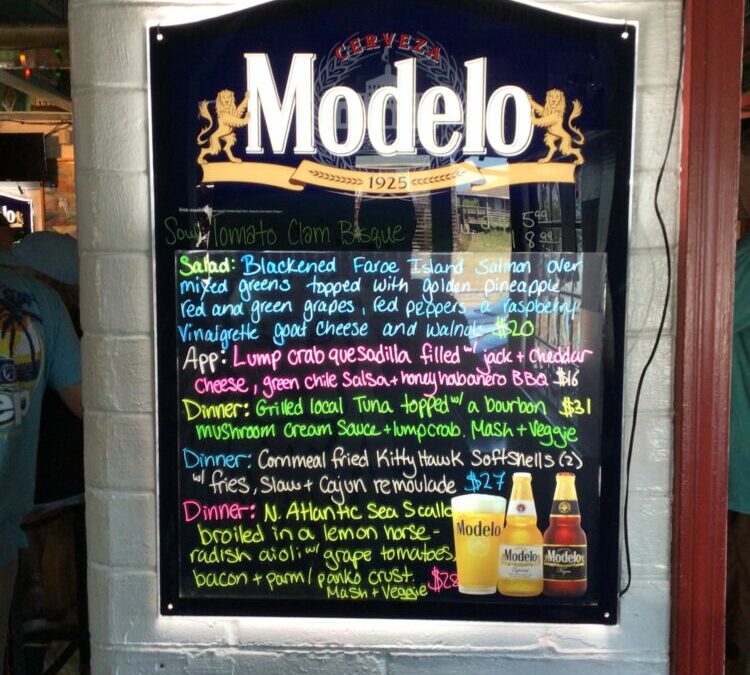 CERVEZA
Modelo
1925
Soup Tomato Clam Bisque
5.99
8.99
Salad: Blackened Faroe Island Salmon over
mixed greens topped with golden pineapple
red and green grapes, red peppers, a raspberry
Vinaigrette goat cheese and walnuts $20
App: Lump crab quesadilla filled w/ jack + cheddar
cheese, green chile Salsa + honey habanero BBQ $16
Dinner: Grilled local Tuna topped w/ a bourbon $31
mushroom cream sauce + lump crab. Mash + Veggie
Dinner: Cornmeal fried Kitty Hawk Softshells (2)
w/ fries, Slaw + Cajun remoulade $27
Dinner: N. Atlantic Sea Scallo
broiled in a lemon horse-
radish aioli w/ grape tomatoes,
bacon + parm/panko crust. $28
Mash + Veggie
Modelo
Modelo
Modelo
Modelo